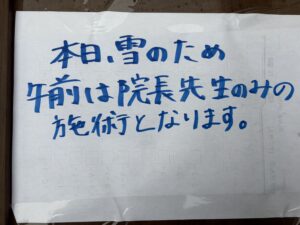 本日、雪のため
午前は院長先生のみの
施術となります。